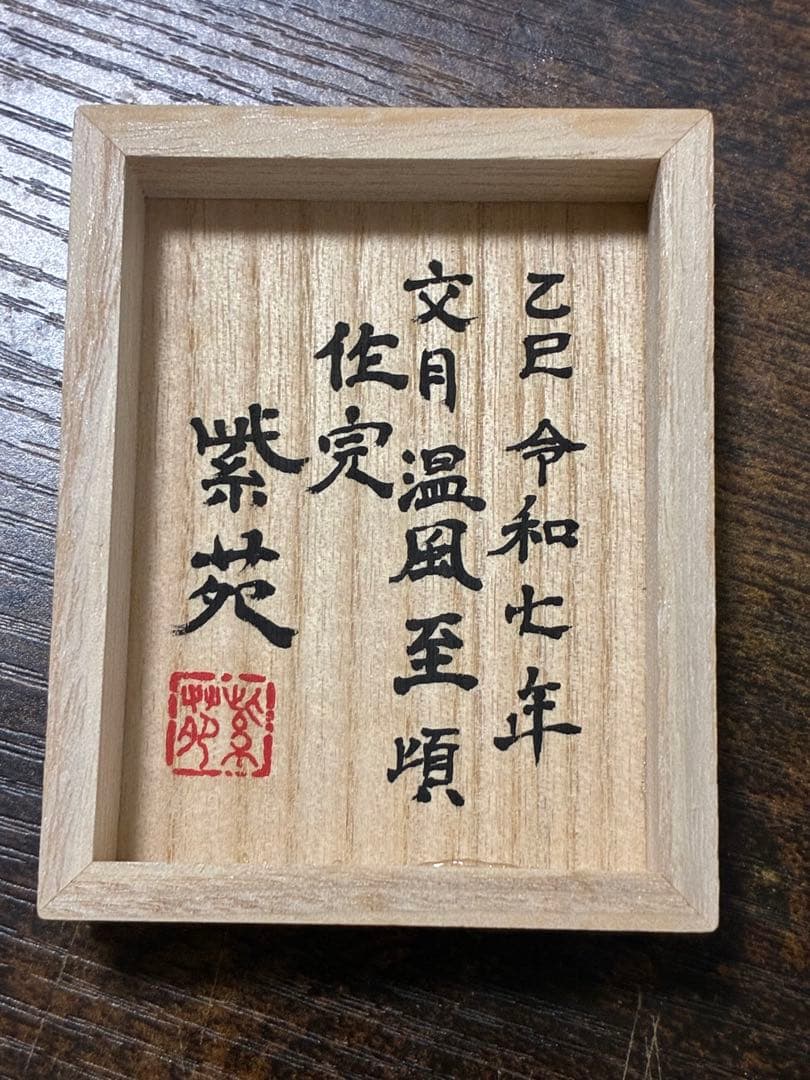 乙巳 令和七年
文月 温風至頃
作完
紫苑
紫苑